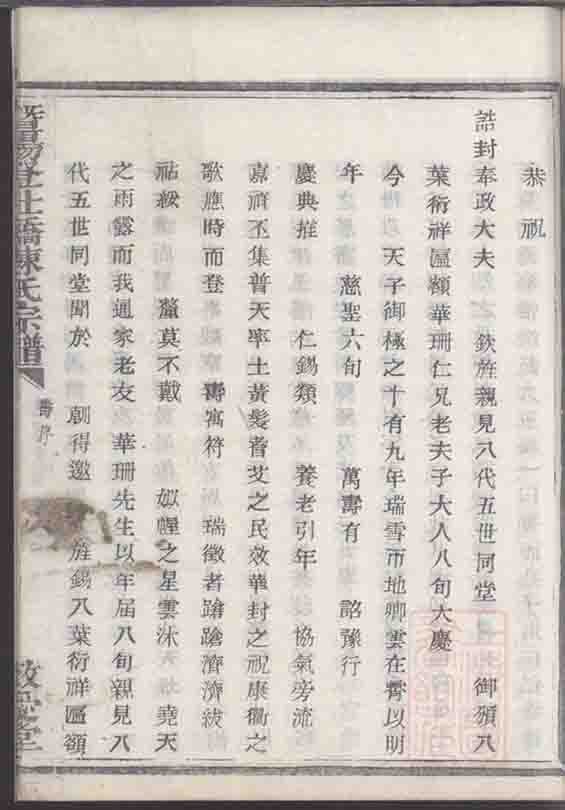 恭祝
誥封奉政大夫　欽旌親見八代五世同堂　御頒八
葉衍祥匾額華珊仁兄老夫子大人八旬大慶
今　天子御極之十有九年瑞雪帀地卿雲在霄以明
年　慈聖六旬　萬壽有　詔豫行
慶典推　仁錫類　養老引年　協氣旁流
嘉祥丕集普天率土黃髮耆艾之民效華封之祝康衢之
歌應時而登　壽寓符　瑞徵者蹌蹌濟濟紱
　　　莫不戴　　之星雲沐　堯天
之雨露而我通家老友　華珊先生以年屆八旬親見八
代五世同堂聞於　　得邀　旌錫八葉衍祥匾額
暨陽　　橋陳氏宗譜　壽序